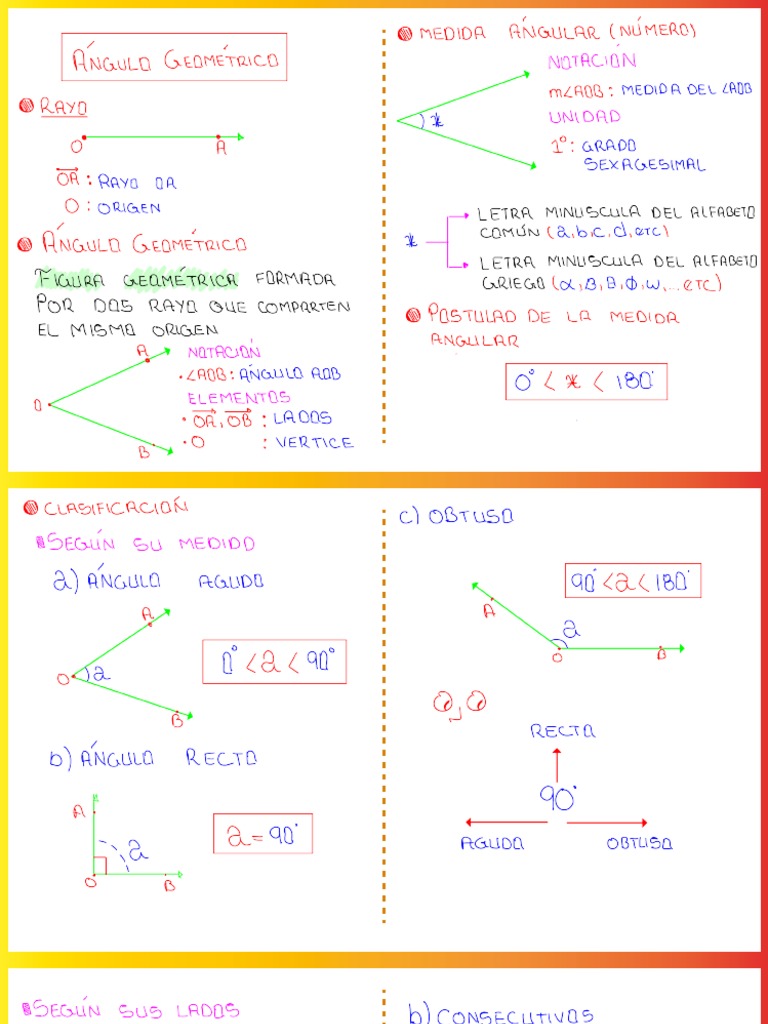 ÁNGULO GEOMÉTRICO
RAYO
O A
OA : RAYO OA
O : ORIGEN
ÁNGULO GEOMÉTRICO
FIGURA GEOMÉTRICA FORMADA
POR DOS RAYO QUE COMPARTEN
EL MISMO ORIGEN
A
O
B
NOTACIÓN
•∠AOB : ÁNGULO AOB
ELEMENTOS
• OA, OB : LADOS
• O : VERTICE
MEDIDA ANGULAR (NÚMERO)
x
NOTACIÓN
m∠AOB : MEDIDA DEL ∠AOB
UNIDAD
1° : GRADO
SEXAGESIMAL
x
LETRA MINUSCULA DEL ALFABETO
COMÚN (a,b,c,d,etc)
LETRA MINUSCULA DEL ALFABETO
GRIEGO (α,β,θ,Φ,ω,...etc)
POSTULAD DE LA MEDIDA
ANGULAR
0° < x < 180°
CLASIFICACIÓN
SEGÚN SU MEDIDO
a) ÁNGULO AGUDO
A
O a
B
0° < a < 90°
b) ÁNGULO RECTO
A
a
O B
a = 90°
c) OBTUSO
90° < a < 180°
A
a
O B
RECTO
90°
AGUDO OBTUSO
SEGÚN SUS LADOS
b) CONSECUTIVOS